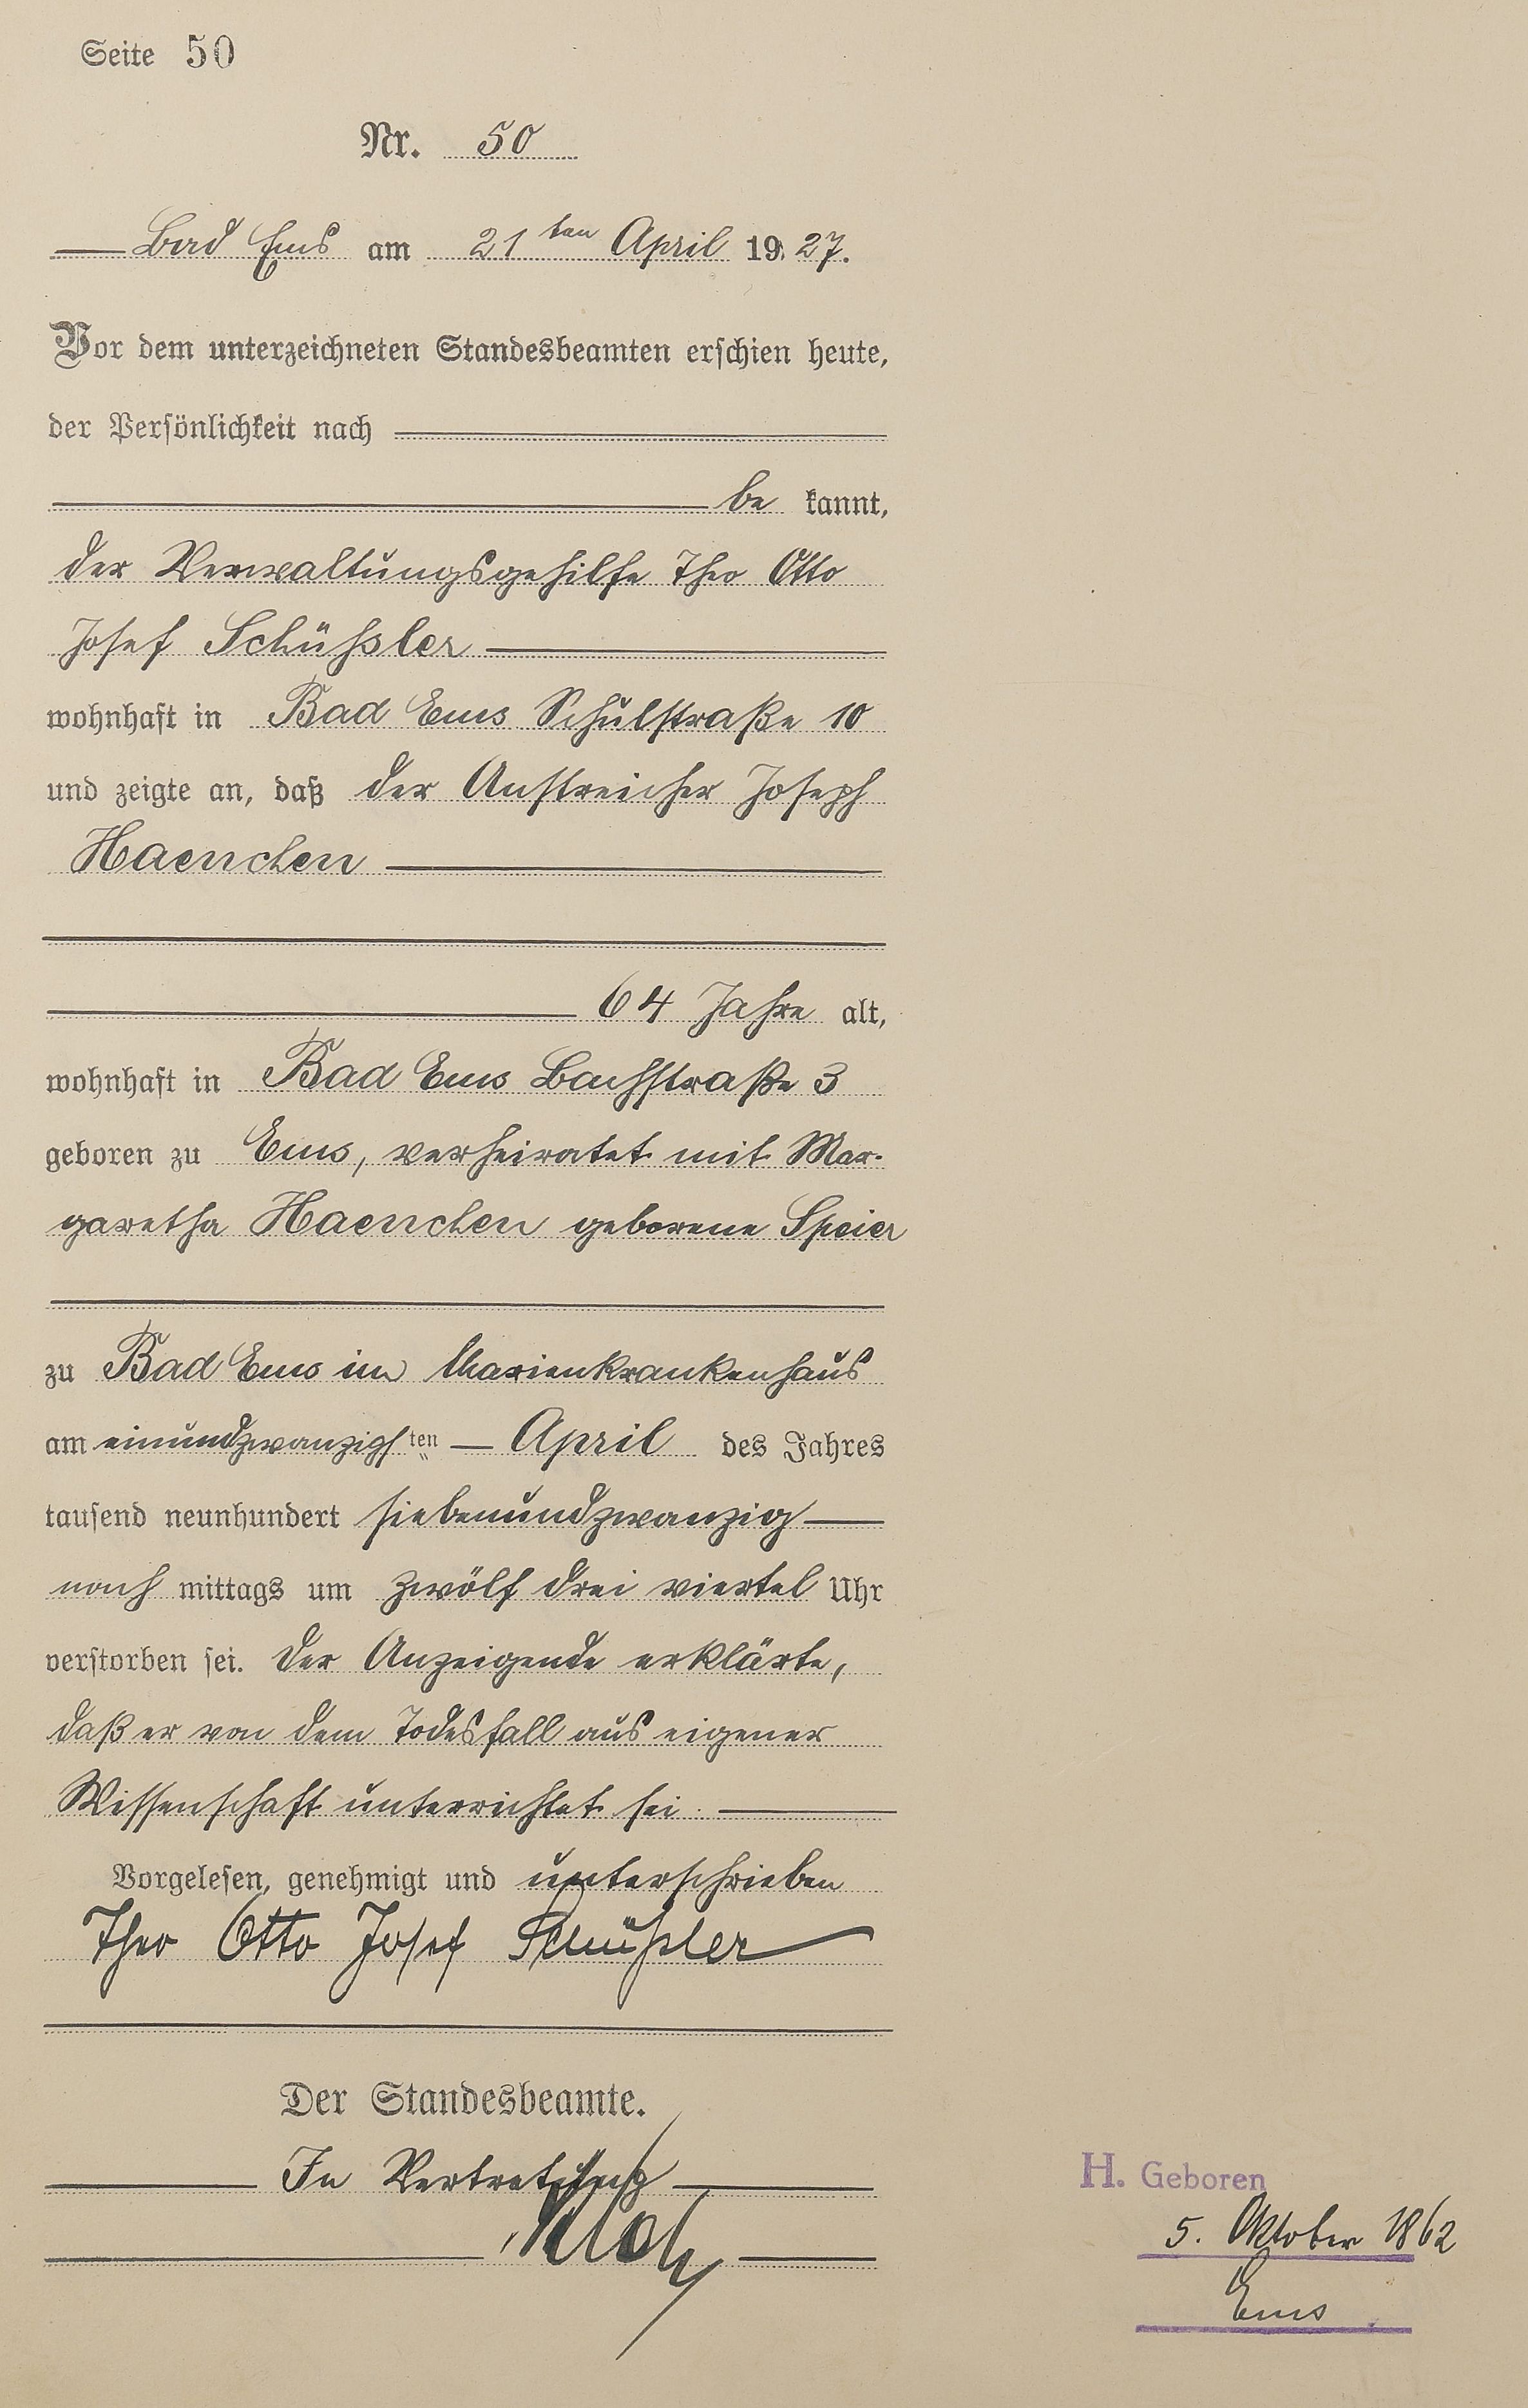 Seite 50
Nr. 50
Bad Ems am 21ten April 1927.
Vor dem unterzeichneten Standesbeamten erschien heute,
der Persönlichkeit nach
be kannt,
der Verwaltungsgehilfe Theo Otto
Josef Schüßler
wohnhaft in Bad Ems Schulstraße 10
und zeigte an, daß der Anstreicher Joseph
Haenchen
64 Jahre alt,
wohnhaft in Bad Ems Bachstraße 3
geboren zu Ems, verheiratet mit Mar-
garetha Haenchen geborene Speier
zu Bad Ems im Marienkrankenhaus
am einundzwanzigsten April des Jahres
tausend neunhundert siebenundzwanzig
nach mittags um zwölf drei viertel Uhr
verstorben sei. Der Anzeigende erklärte,
daß er von dem Todesfall aus eigener
Wissenschaft unterrichtet sei.
Vorgelesen, genehmigt und unterschrieben
Theo Otto Josef Schüßler
Der Standesbeamte.
In Vertretung
H. Geboren
5. Oktober 1862
Ems